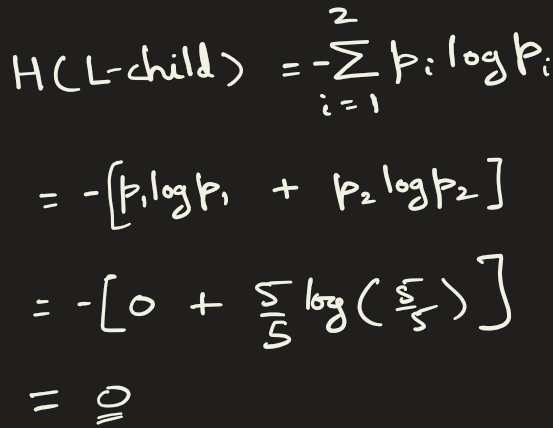 H(L-child) = -∑_{i=1}^{2} p_i log p_i
= -[p_1 log p_1 + p_2 log p_2]
= -[0 + 5/5 log(5/5)]
= 0